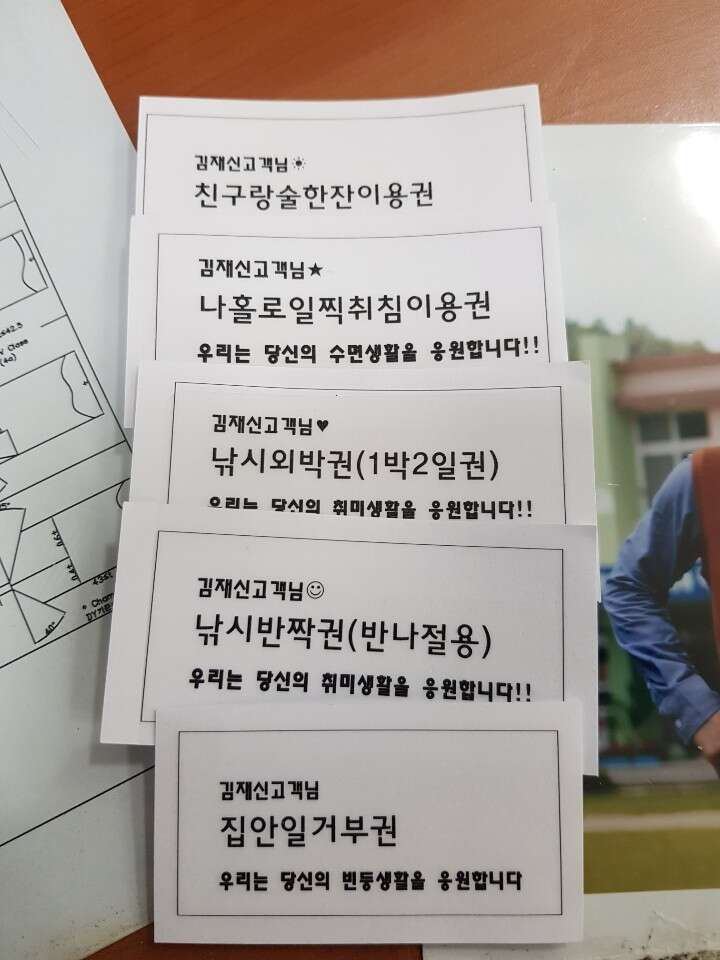 김재신고객님☀
친구랑술한잔이용권
김재신고객님★
나홀로일찍취침이용권
우리는 당신의 수면생활을 응원합니다!!
김재신고객님♥
낚시외박권(1박2일권)
우리는 당신의 취미생활을 응원합니다!!
김재신고객님☺
낚시반짝권(반나절용)
우리는 당신의 취미생활을 응원합니다!!
김재신고객님
집안일거부권
우리는 당신의 빈둥생활을 응원합니다